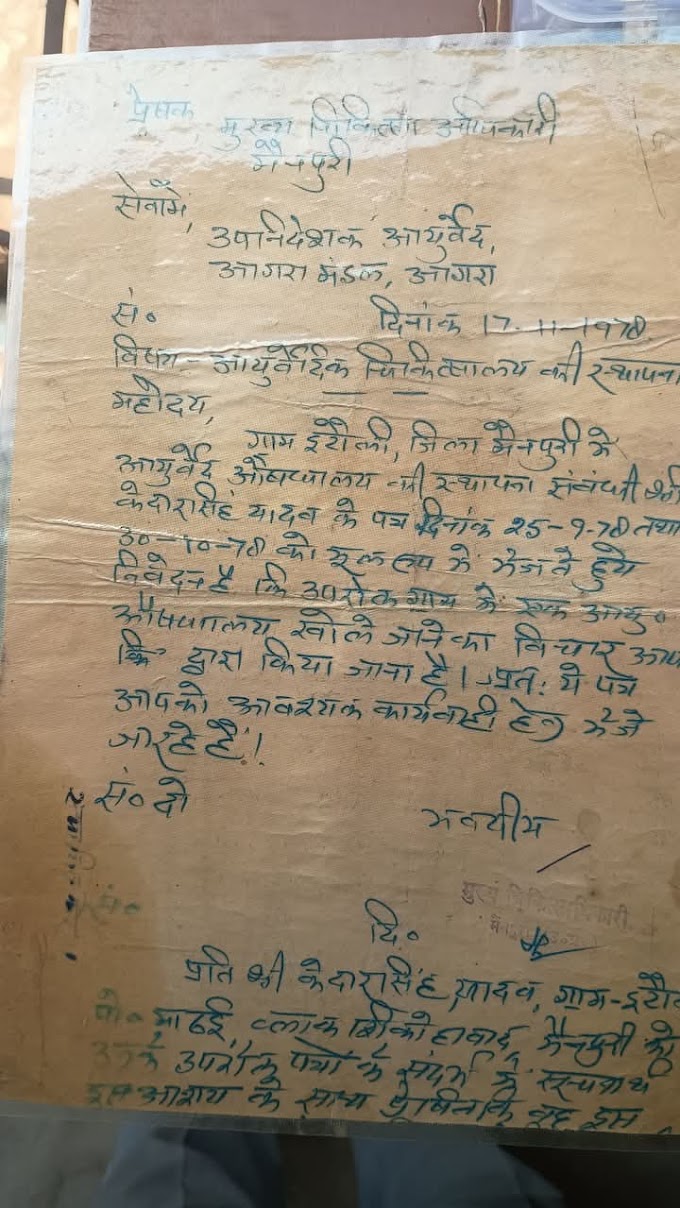 प्रेषक मुख्य चिकित्सा अधिकारी
मैनपुरी
सेवामें,
उपनिदेशक आयुर्वेद,
आगरा मंडल, आगरा
सं०
दिनांक 17-11-1978
विषय - आयुर्वेदिक चिकित्सालय की स्थापना
महोदय,
ग्राम इटौली, जिला मैनपुरी मे
आयुर्वेद औषधालय की स्थापना संबंधी श्री
केदारसिंह यादव के पत्र दिनांक 25-9-78 तथा
30-10-78 को मूल रूप में भेजते हुये
निवेदन है कि उपरोक्त ग्राम में एक आयु०
औषधालय खोले जाने का विचार आप
के द्वारा किया जाना है। अतः ये पत्र
आपको आवश्यक कार्यवाही हेतु भेजे
जा रहे हैं।
सं० दो
भवदीय
मुख्य चिकित्साधिकारी
सं०
दि०
प्रति श्री केदारसिंह यादव, ग्राम-इटौ
पो० ब्लाक मैनपुरी को
उनके उपरोक्त पत्रों के संदर्भ में सूचनार्थ
इस आशय के साथ प्रेषित कि वह इस